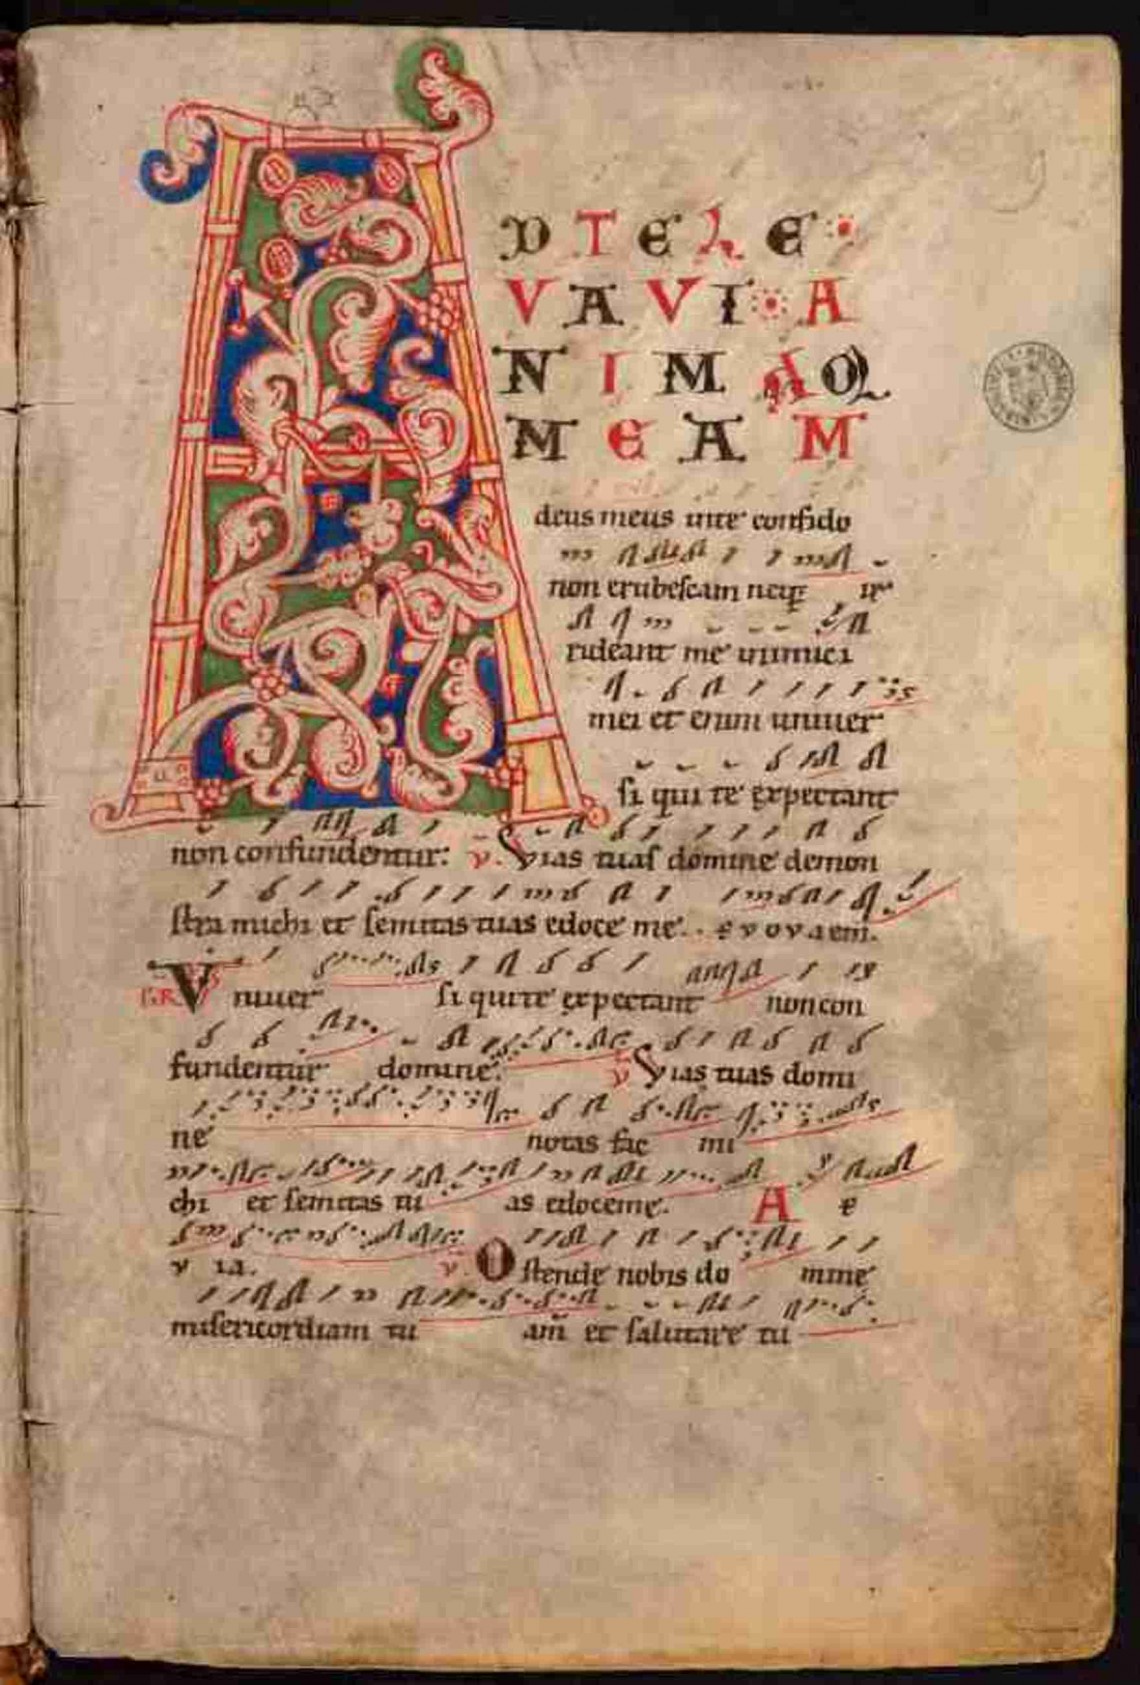 A
D TE LE
VAVI A
NIMAM
MEAM
deus meus inte confido
non erubescam neqꝫ ir
rideant me inimici
mei et enim univer
si qui te expectant
non confundentur: v. Vias tuas domine demon
stra michi et semitas tuas edoce me. evovaem.
GR Univer si qui te expectant non con
fundentur domine. v Vias tuas domi
ne notas fac mi
chi et semitas tu as edoceme. A e
v ia. v. Ostende nobis do mine
misericordiam tu am et salutare tu